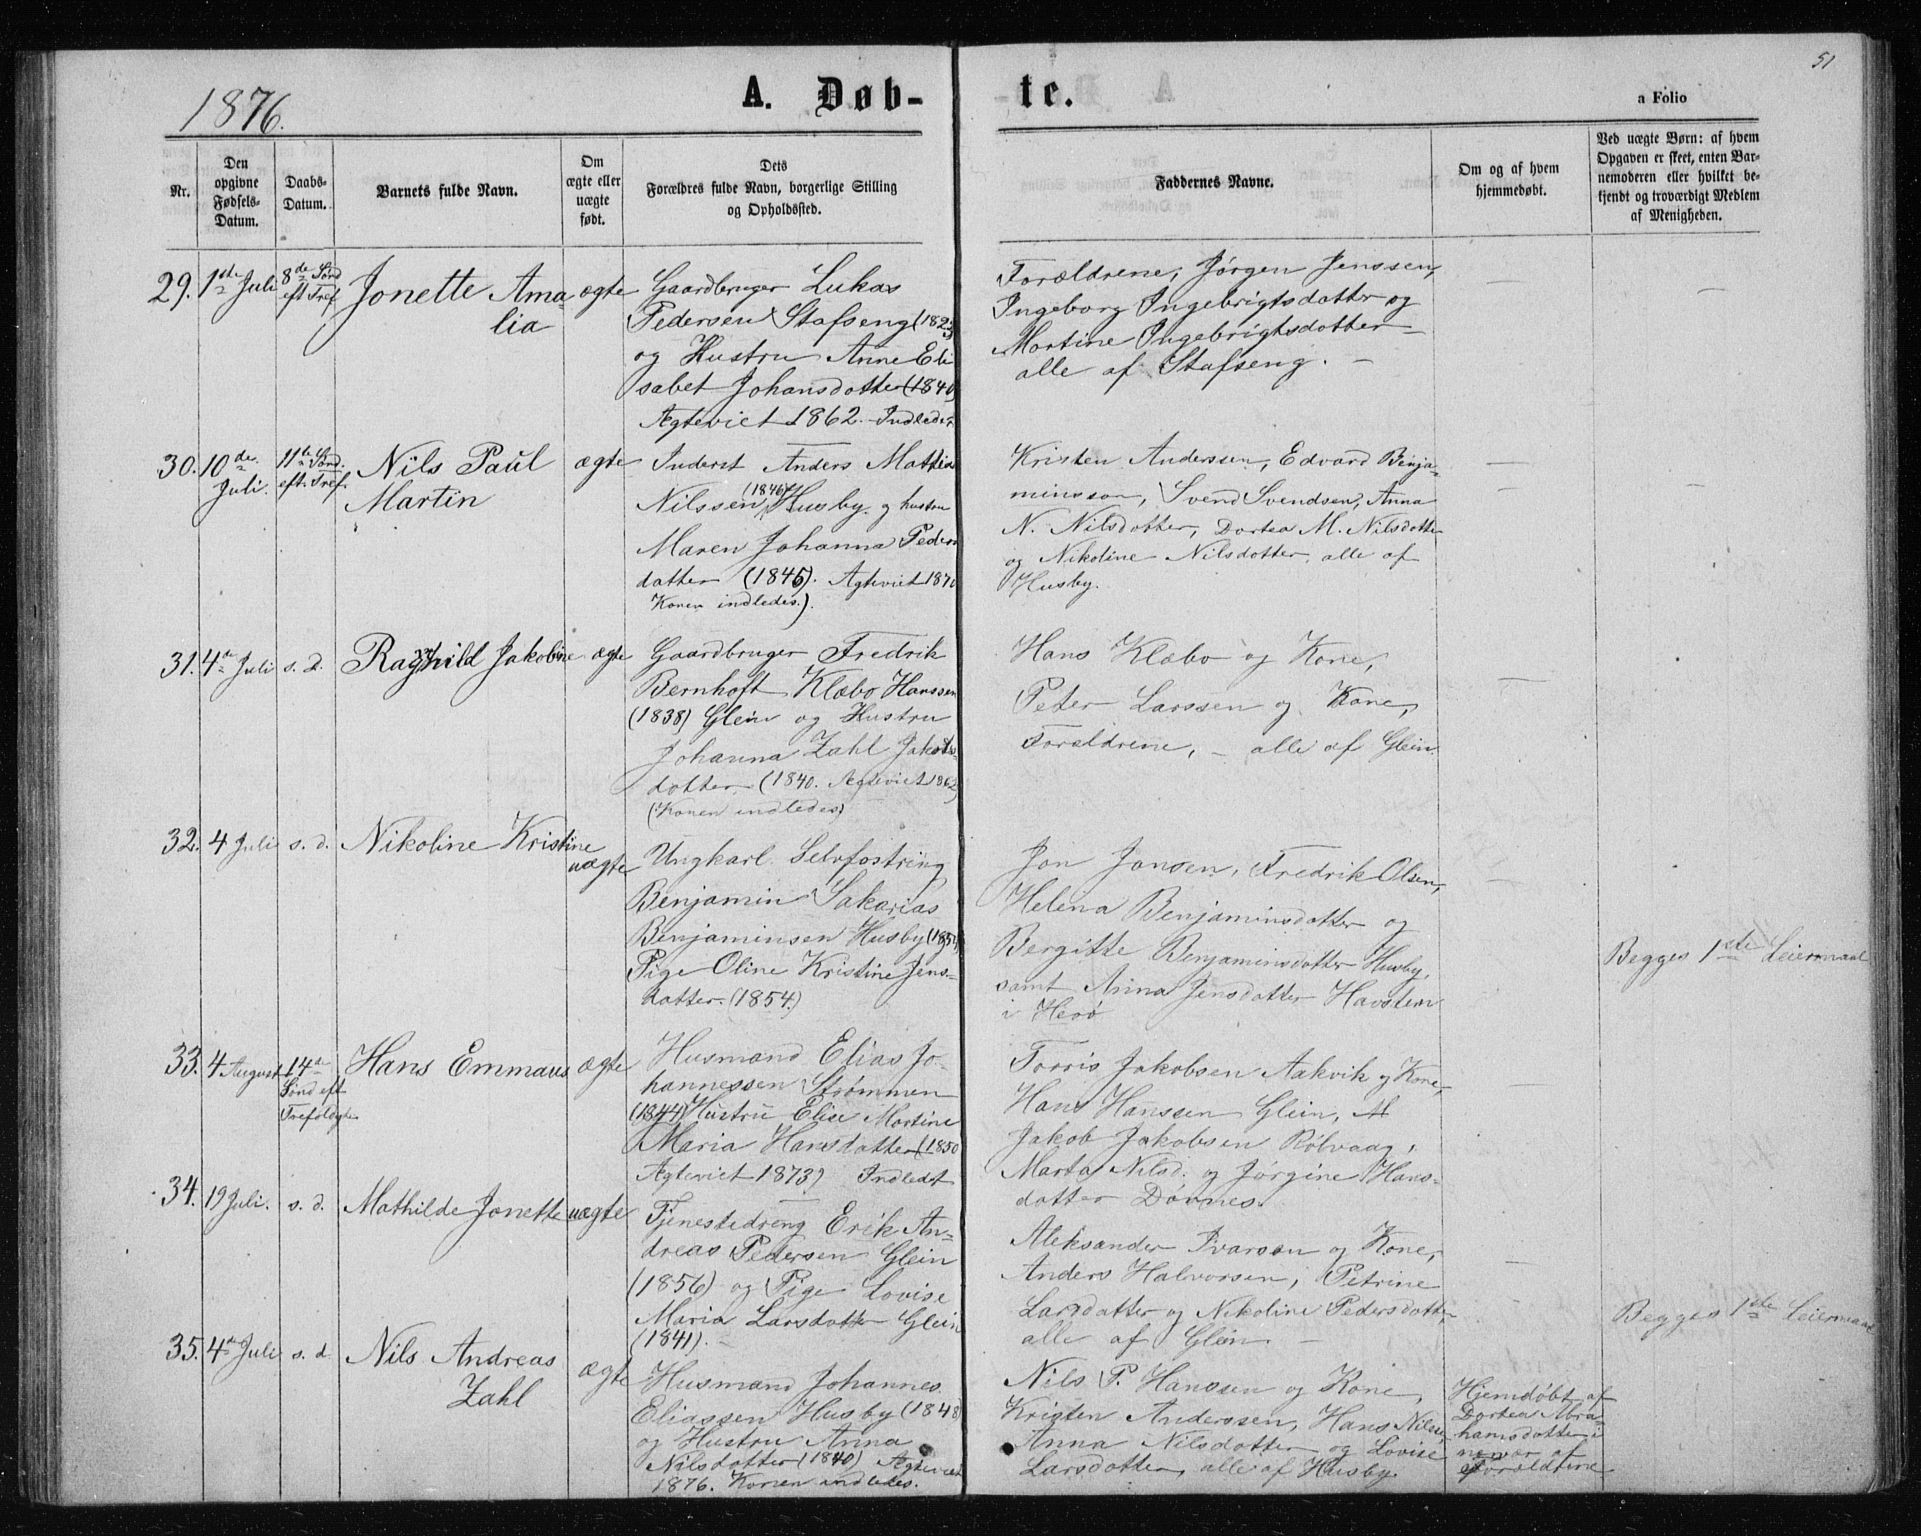 51
1876.
A. Døb-
te.
a Folio
Nr.
Den
opgivne
Fødsels-
Datum.
Daabs-
Datum.
Barnets fulde Navn.
Om
ægte eller
uægte
født.
Dets
Forældres fulde Navn, borgerlige Stilling
og Opholdssted.
Faddernes Navne.
Om og af hvem
hjemmedøbt.
Ved uægte Børn: af hvem
Opgaven er skeet, enten Bar-
nemoderen eller hvilket be-
kjendt og troværdigt Medlem
af Menigheden.
29. 1ste Juli
8de Sönd
eft Tref.
Jonette Ama-
lia
ægte
Gaardbruger Lukas
Pedersen Stafseng (182
og Hustru Anne Eli
sabet Johansdotter (1840)
Ægteviet 1862. Indledes.
Forældrene, Jørgen Jenssen,
Ingeborg Ingebrigtsdotter og
Martine Ingebrigtsdotter
alle af Stafseng. —
—
—
30. 10de
Juli.
11te Sönd.
eft. Tref.
Nils Paul
Martin
ægte
Inderst Anders Mathias
Nilssen (1846) Husby. g hustru
Maren Johanna Peders
datter (1845). Ægteviet 1870
Konen indledes.).
Kristen Anderssen, Edvard Benja-
minsson, Svend Svendsen, Anna
N. Nilsdotter, Dortea M. Nilsdotter
og Nikoline Nilsdotter, alle af
Husby.
—
—
31. 4de Juli s. d. Ragnhild Jakobine ægte
Gaardbruger Fredrik
Bernhoft Klæbo Hanssen
(1838) Glein og Hustru
Johanna Zahl Jakobs-
dotter (1840. Ægteviet 1862
(Konen indledes)
Hans Klæbo og Kone,
Peter Larssen og Kone,
Forældrene, — alle af Glein.
—
32. 4 Juli s. d. Nikoline Kristine
uægte
Ungkarl Selvfostring
Benjamin Sakarias
Benjaminsen Husby (185
Pige Oline Kristine Jens-
datter. (1854.)
Jon Jonsen, Fredrik Olsen,
Helena Benjaminsdatter og
Bergitte Benjaminsdotter Husby.
samt Anna Jensdatter Havsteen
i Herö
—
Begges 1ste Leiermaal
33. 4 August
14de
Sönd eft
Trefoldgh.
Hans Emmaus ægte
Husmand Elias Jo-
hannessen Strømmen
(1844) Hustru Elise Martine
Maria Hansdatter (1850
Ægteviet 1873) Indledt
Torris Jakobsen Aakvik og Kone,
Hans Hanssen Glein,
Jakob Jakobsen Rölvaag,
Marta Nilsd. og Jørgine Hans-
dotter Dönnes.
34. 19 Juli. s. d. Mathilde Jonette uægte
Tjenestedreng Erik An-
dreas Pedersen Glein
(1856) og Pige Lovise
Maria Larsdotter Glein
(1841). —
Aleksander Ivarsen og Kone,
Anders Halvorsen, Petrine
Larsdatter og Nikoline Pedersdotter,
alle af Glein. —
—
Begges 1ste Leiermaal
35. 4de Juli s. d. Nils Andreas
Zahl
ægte
Husmand Johannes
Eliassen Husby (1848)
og Hustru Anna
Nilsdotter (1840) Ægteviet
1876. Konen indledes.
Nils P. Hanssen og Kone,
Kristen Anderssen, Hans Nilssen
Anna Nilsdotter og Lovise
Larsdotter, alle af Husby.
Hjemdöbt af
Dortea Abra-
hamsdotter i
nærvær af
Forældrene